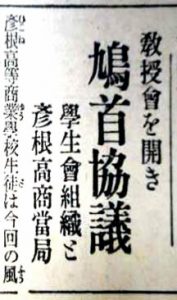 教授會を開き
鳩首協議
學生會組織と
彦根高商當局
彦根高等商業學校生徒は今回の風